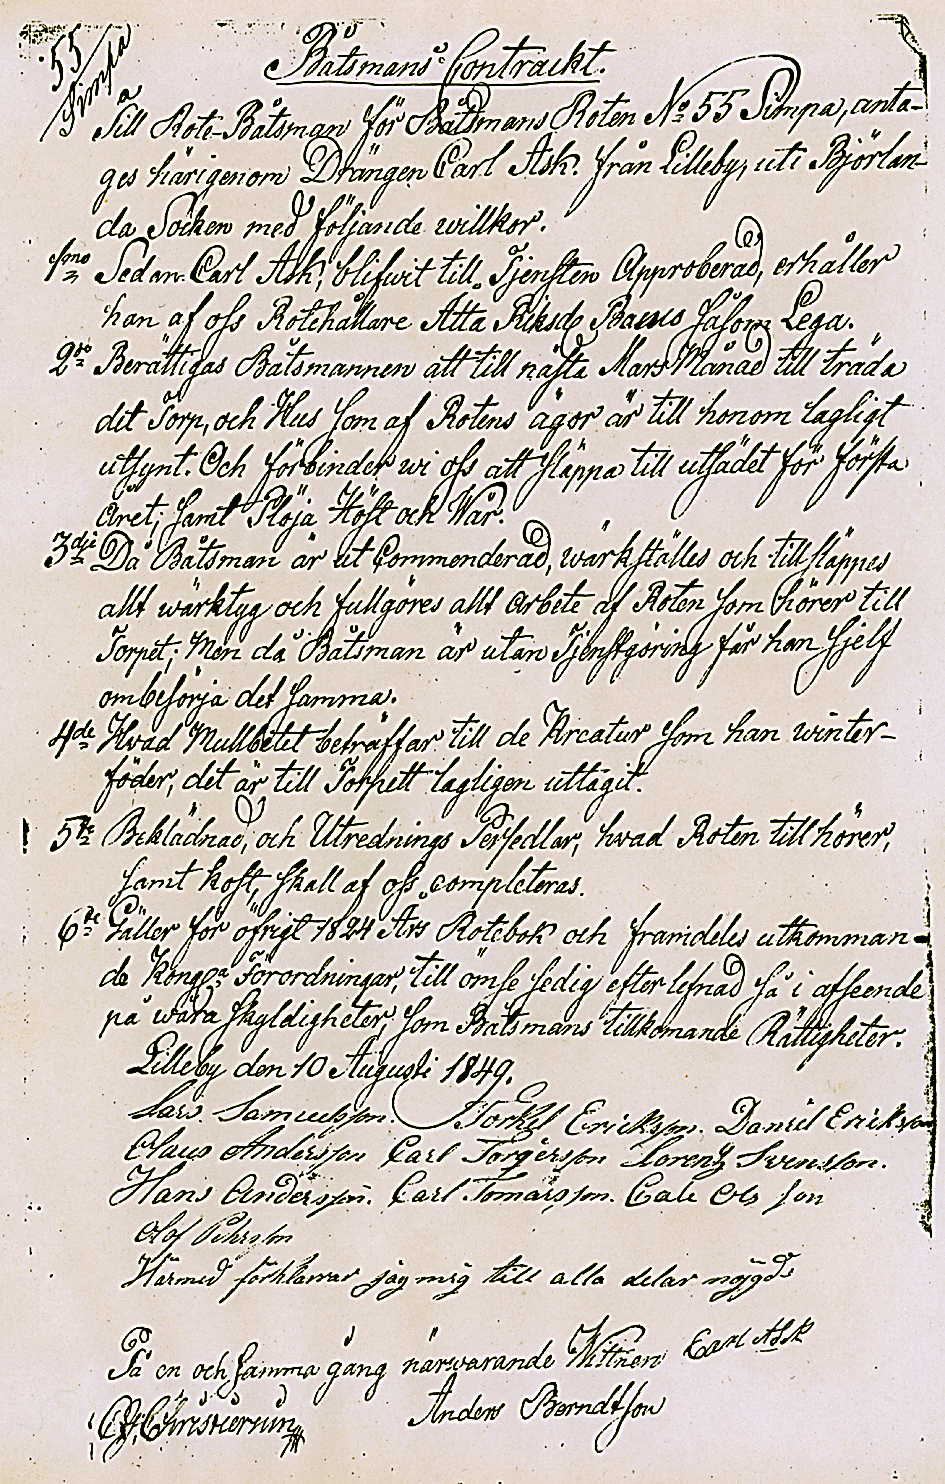 55
Simpa
Båtsmans Contrackt.
Till Rote-Båtsman för Båtsmans Roten No 55 Simpa, anta-
ges härigenom Drängen Carl Ask. från Lilleby, uti Björlan-
da Socken med följande willkor.
1mo Sedan Carl Ask, blifwit till Tjensten Approberad, erhåller
han af oss Rotehållare Åtta Riksd Banco såsom Lega.
2do Berättigas Båtsmannen att till nästa Mars Månad till träda
det Torp, och Hus som af Rotens ägor är till honom lagligt
utsynt. Och förbinder wi oss att släppa till utsädet för första
Året, samt Plöja Höst och Wår.
3dje Då Båtsman är ut Commenderad, wärkställes och tillsläppes
allt wärktyg och fullgöres allt arbete af Roten som hörer till
Torpet; Men då Båtsman är utan Tjenstgöring får han sjelf
ombesörja det samma.
4de Hvad Mullbetet beträffar till de Kreatur som han winter-
föder, det är till Torpett lagligen uttagit.
5te Beklädnad, och Utrednings Persedlar, hvad Roten till hörer,
samt kost, skall af oss completeras.
6te Gäller för öfrigt 1824 Års Rotebok och framdeles utkomman-
de Kongga Förordningar, till ömse sedig efter lefnad så i afseende
på wåra skyldigheter, som Båtsmans tillkomande Rättigheter.
Lilleby den 10 Augusti 1849.
Lars Samuelsson. Torkel Ericksson. Daniel Ericksson
Olaus Andersson Carl Torgersson Lorenz Svensson.
Hans Andersson. Carl Tomasson. Cale Ols son
Olof Pehrson
Härmed förklarrar jag mig till alla delar nöjgd
Carl Ask
På en och samma gång närwarande Wittnen
Anders Berndtsson